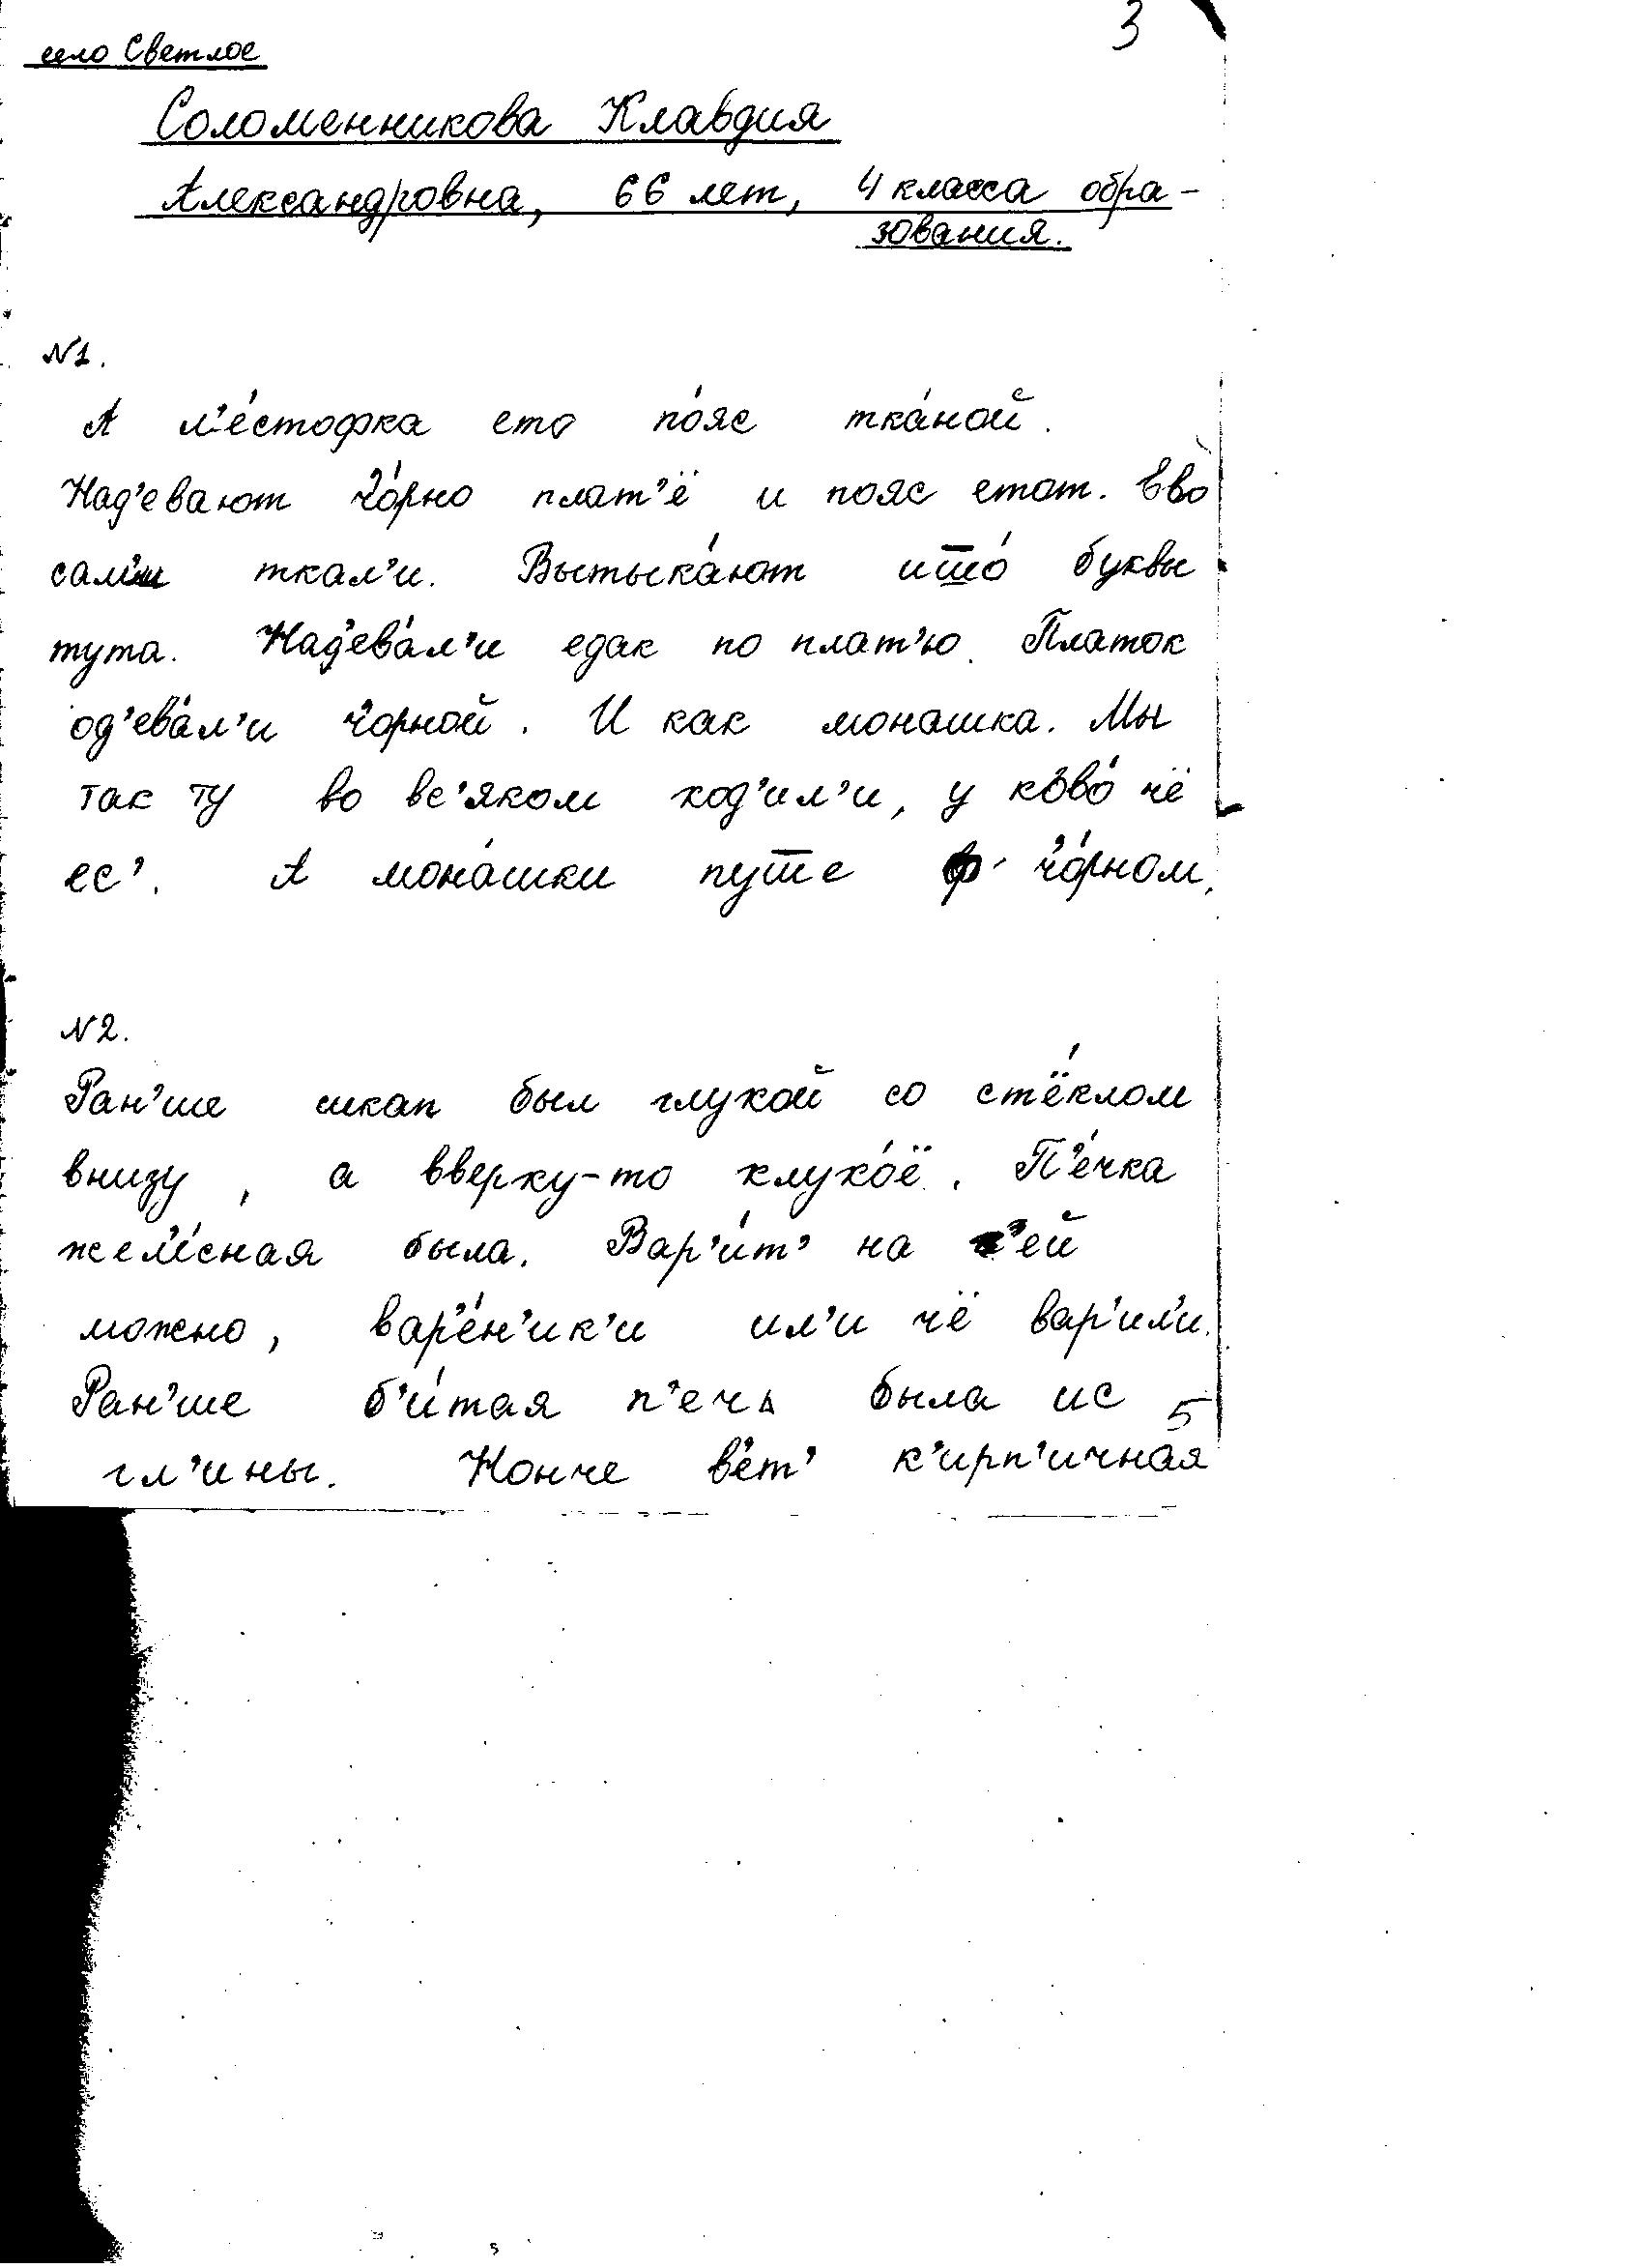 3
село Светлое
Соломенникова Клавдия
Александровна, 66 лет, 4 класса обра-
зования.
N1.
А л'е́стофка ето по́яс тка́ной.
Над'евают чо́рно плат'ё и пояс етот. Ево́
сам'и ткал'и. Вытыка́ют што́ буквы
тута. Над'ева́л'и едак по плат'ю. Платок
од'ева́л'и чорной. И как монашка. Мы
так ту во вс'яком ход'ил'и, у ково́ чё
ес'. А мона́шки путе ф чо́рном.
N2.
Ран'ше шкап был глухой со стёклом
внизу, а вверху-то хлухо́ё. П'е́чка
жел'е́сная была. Вар'и́т' на н'ей
можно, вар'е́н'ик'и ил'и чё вар'ил'и.
Ран'ше б'и́тая п'ечь была ис
5
гл'ины. Нонче в'ет' к'ирп'ичная